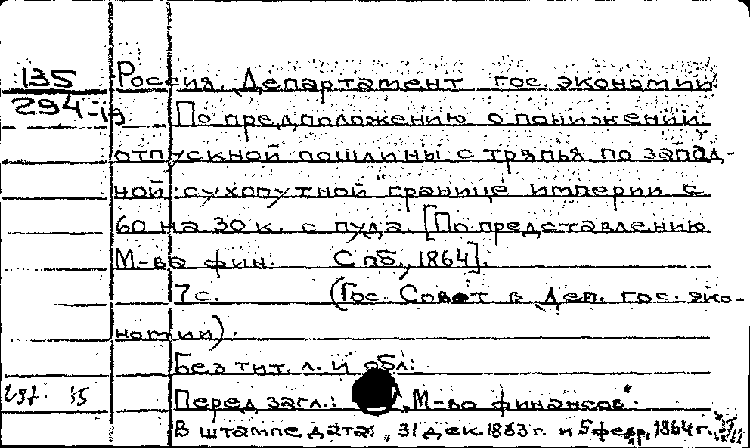 135
294-19
Россия. Департамент гос. экономии
По предположению о понижении
отпускной пошлины с тряпья по запад-
ной сухопутной границе империи с
60 на 30 к. с пуда. [По представлению
М-ва фин. Спб., 1864].
7 с. (Гос. Совет в Деп. гос. эко-
номии).
Без тит. л. и обл.
Перед загл.: „М-во финансов".
В штампе дата: „31 дек. 1863 г. и 5 февр. 1864 г.